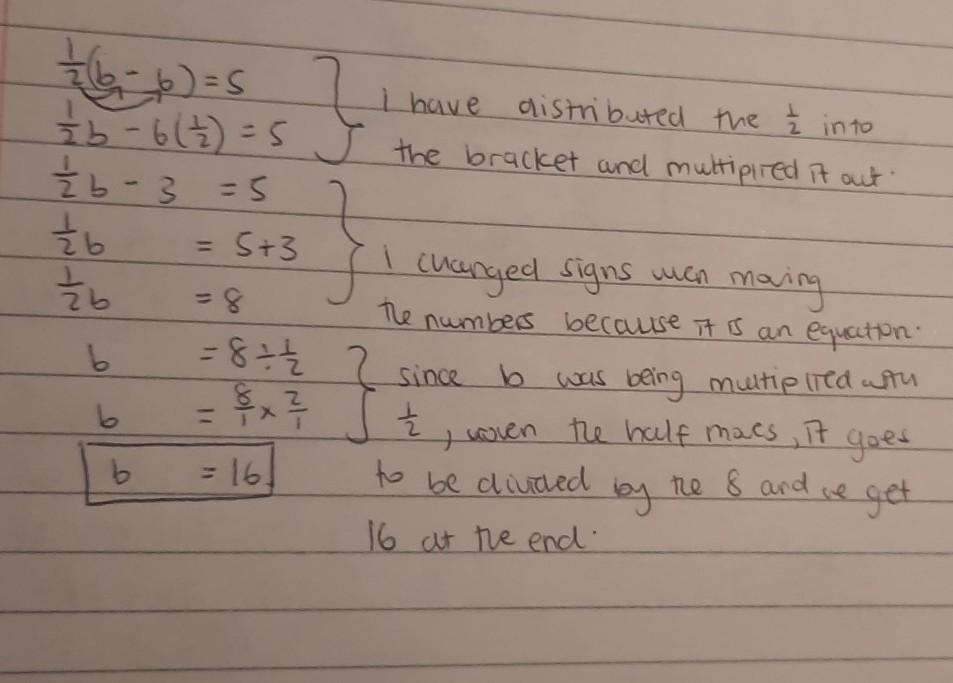 ½(b - 6) = 5
½b - 6(½) = 5
½b - 3 = 5
½b = 5+3
½b = 8
b = 8 ÷ ½
b = 8/1 × 2/1
b = 16
i have distributed the ½ into
the bracket and multiplied it out.
i changed signs when moving
the numbers because it is an equation.
since b was being multiplied with
½, when the half moves, it goes
to be divided by the 8 and we get
16 at the end.